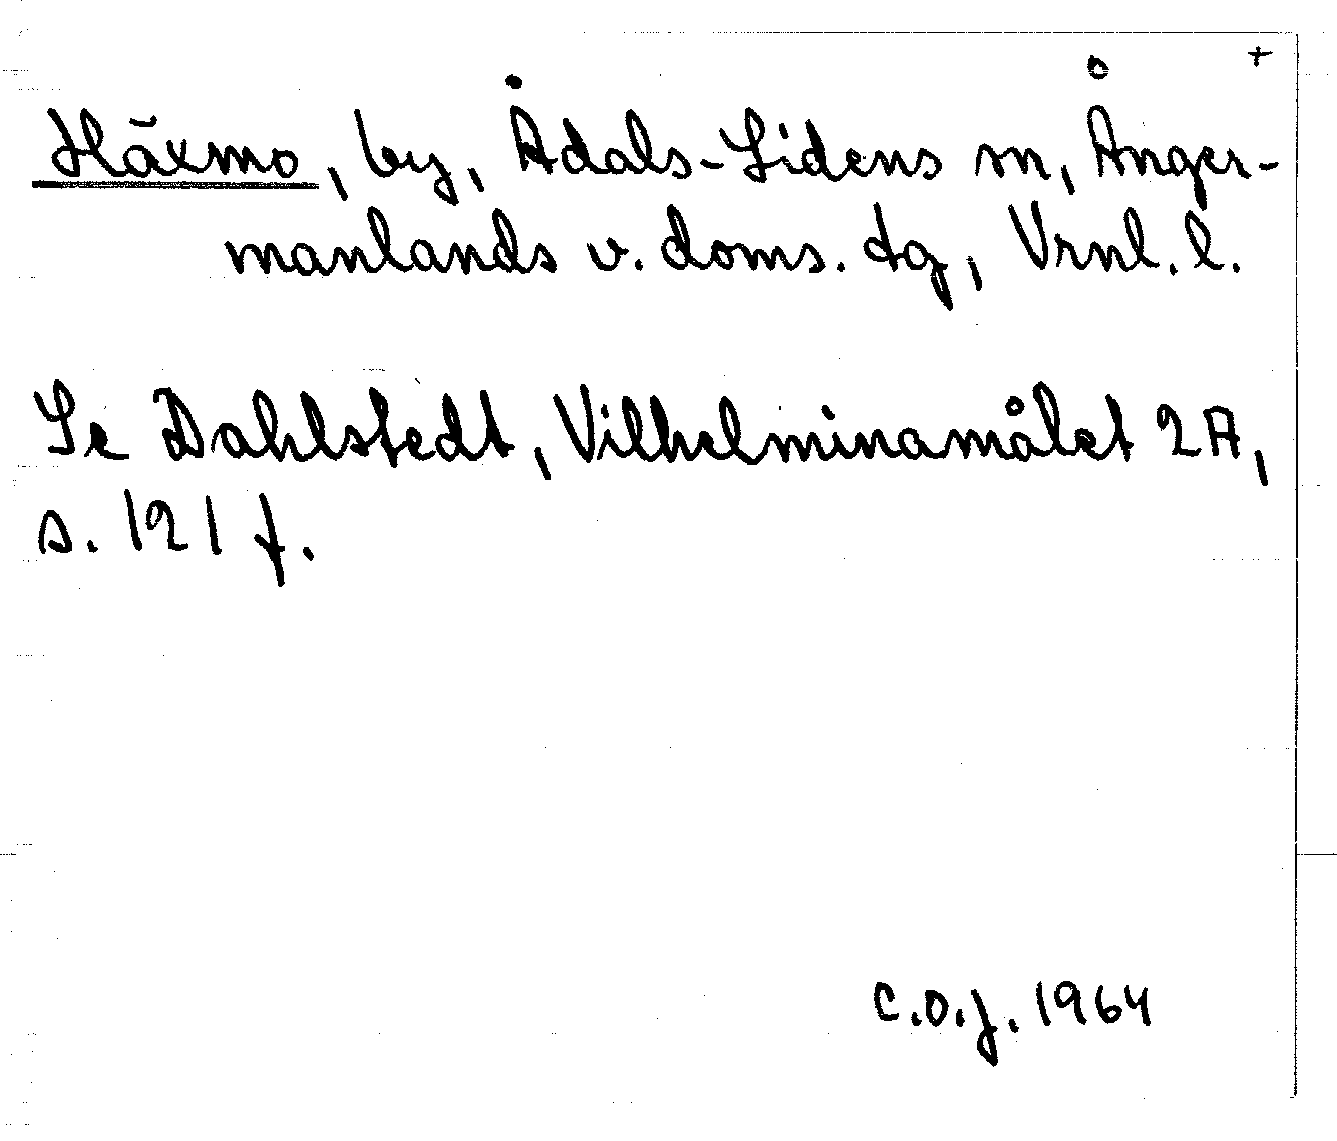 +
Häxmo, by, Ådals-Lidens sn, Ånger-
manlands v. doms. tg, Vrnl. l.
Se Dahlstedt, Vilhelminamålet 2A,
s. 121 f.
C.O.J. 1964